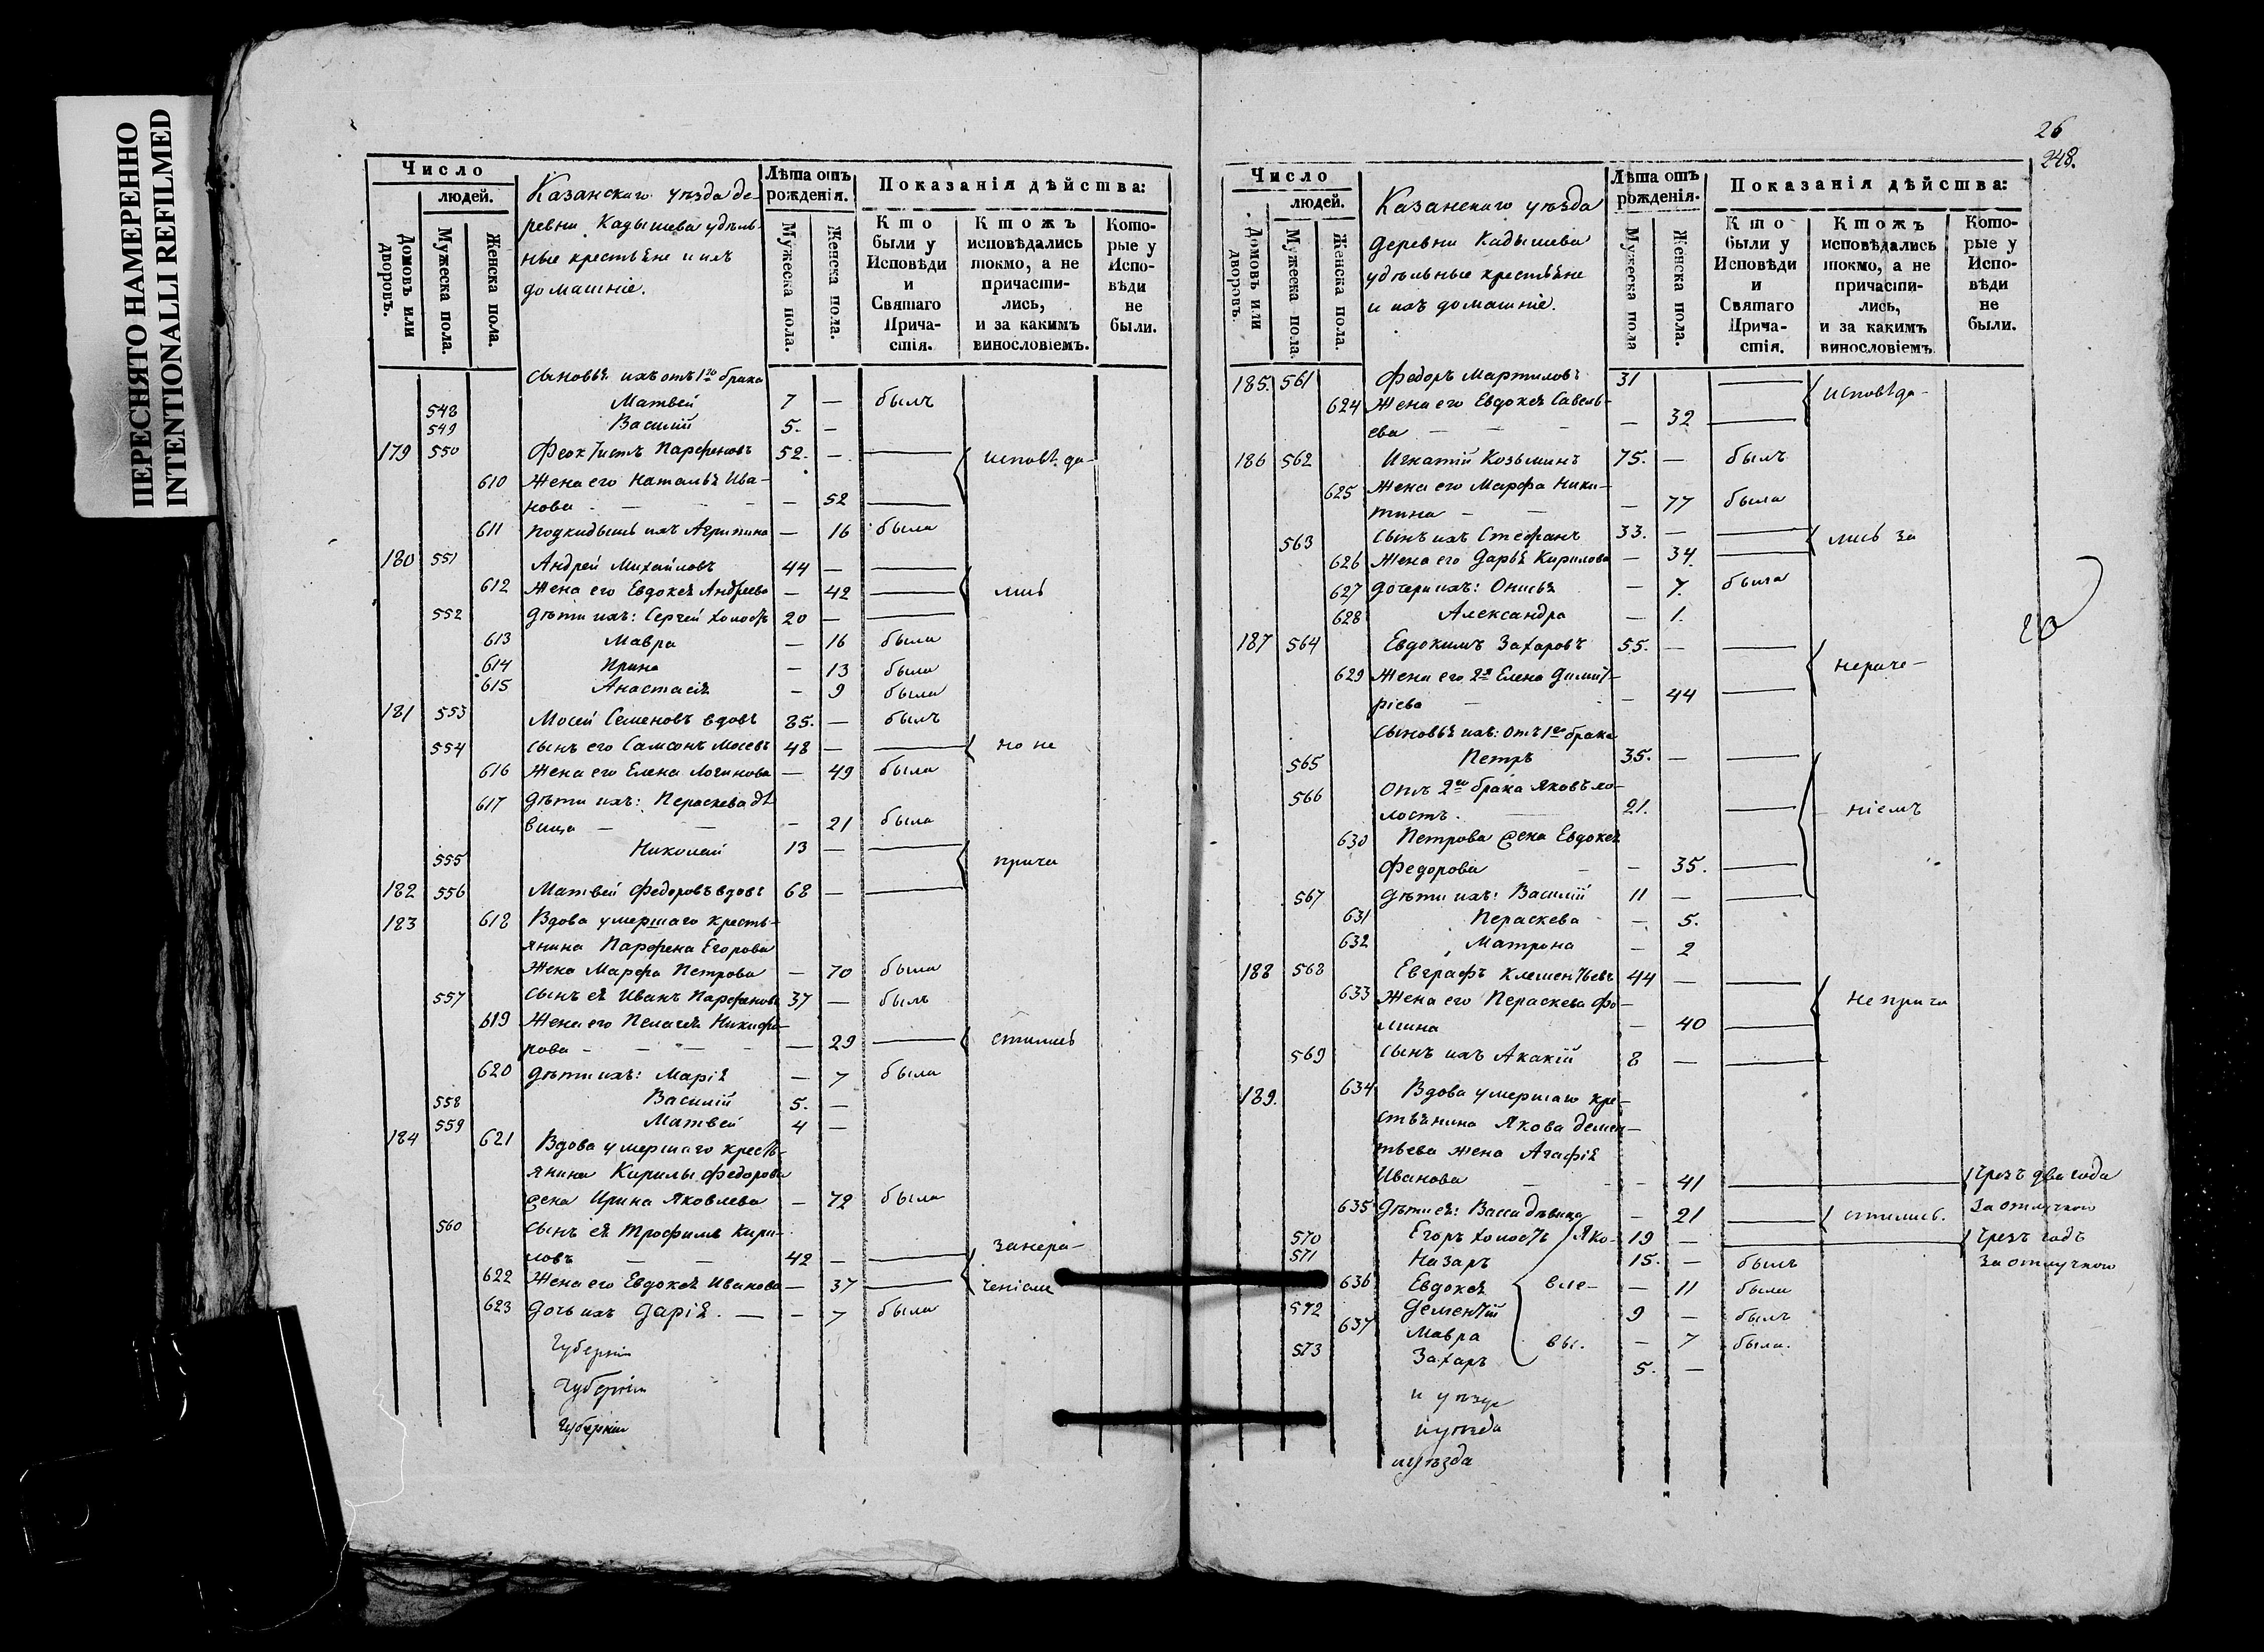 ПЕРЕСНЯТО НАМЕРЕННО
INTENTIONALLI REFILMED
Число
людей.
Домовъ или дворовъ.
Мужеска пола.
Женска пола.
Казанскаго уѣзда де-
ревни Кадышева удѣль-
ные крестьяне и ихъ
домашніе.
Лѣта отъ рожденія.
Мужеска пола.
Женска пола.
Показанія дѣйства:
Кто были у Исповѣди и Святаго Прича-стія.
Ктожъ исповѣдались токмо, а не причасти-лись, и за какимъ винословіемъ.
Кото-рые у Испо-вѣди не были.
сыновья ихъ отъ 1го брака
548 Матвей 7 — былъ
549 Василий 5. —
179 550 Феоктистъ Парфеновъ 52. — — исповѣда-
610 Жена его Наталья Ива-
нова — 52 —
611 подкидышъ ихъ Агрипина — 16 была
180 551 Андрей Михайловъ 44 — —
612 Жена его Евдокея Андреева — 42 — лись
552 дѣти ихъ: Сергей холостъ 20 — —
613 Мавра — 16 была
614 Ирина — 13 была
615 Анастасія — 9 была
181 553 Мосей Семеновъ вдовъ 85. — былъ
554 сынъ его Самсонъ Мосевъ 48 — — но не
616 Жена его Елена Логинова — 49 была
617 дѣти ихъ: Параскева дѣ-
вица — 21 была
555 Николай 13 — — прича
182 556 Матвей Федоровъ вдовъ 68 — —
183 618 Вдова умершаго кресть-
янина Парфена Егорова
жена Марфа Петрова — 70 была
557 сынъ ея Иванъ Парфеновъ 37 — былъ
619 Жена его Пелагея Никифо-
рова — 29 — стились
620 дѣти ихъ: Марія — 7 была
558 Василій 5. —
559 Матвей 4 —
184 621 Вдова умершаго кресть-
янина Кирилы Федорова
жена Ирина Яковлева — 72 была
560 сынъ ея Трофимъ Кири-
ловъ 42 — — занера-
622 Жена его Евдокея Иванова — 37 — ченіемъ
623 дочь ихъ Дарія. — 7 была
Губерніи
Губерніи
Губерніи
26
248.
Число
людей.
Домовъ или дворовъ.
Мужеска пола.
Женска пола.
Казанскаго уѣзда
деревни Кадышева
удѣльные крестьяне
и ихъ домашніе.
Лѣта отъ рожденія.
Мужеска пола
Женска пола.
Показанія дѣйства:
Кто были у Исповѣди и Святаго Прича-стія.
Ктожъ исповѣдались токмо, а не причасти-лись, и за какимъ винословіемъ
Кото-рые у Испо-вѣди не были.
185. 561 Федоръ Мартиловъ 31 — исповѣда-
624 Жена его Евдокея Савель-
ева — 32 —
186 562 Игнатій Козьминъ 75. — былъ
625 Жена его Марфа Ники-
тина — 77 была
563 сынъ ихъ Стефанъ 33. — — лись за
626 Жена его Дарья Кирилова — 34. —
627 дочери ихъ: Онисья — 7. была
628 Александра — 1.
187 564 Евдокимъ Захаровъ 55. — —
629 Жена его 2я Елена Димит-
ріева — 44 — нераче-
сыновья ихъ: отъ 1го брака
565 Петръ 35. — —
566 Отъ 2го брака Яковъ хо-
лостъ. 21. — ніемъ
630 Петрова жена Евдокея
Федорова — 35. —
567 дѣти ихъ: Василій 11 — —
631 Параскева — 5.
632 Матрона — 2
188 568 Евграфъ Клементьевъ 44 — —
633 Жена его Параскева Фо-
мина — 40 — не прича
569 сынъ ихъ Акакій 8 — —
189. 634 Вдова умершаго кре-
стьянина Якова Демен-
тьева жена Агафія
Иванова — 41 — чрезъ два года
635 дѣти ея: Васса дѣвица — 21 — стились. За отлучкою
570 Егоръ холостъ Яко- 19 — — чрезъ годъ
571 Назаръ 15. — былъ За отлучкою
636 Евдокея вле- — 11 была
572 Дементій 9 — былъ
637 Мавра вы. — 7 была.
573 Захаръ 5. —
и уѣзда
и уѣзда